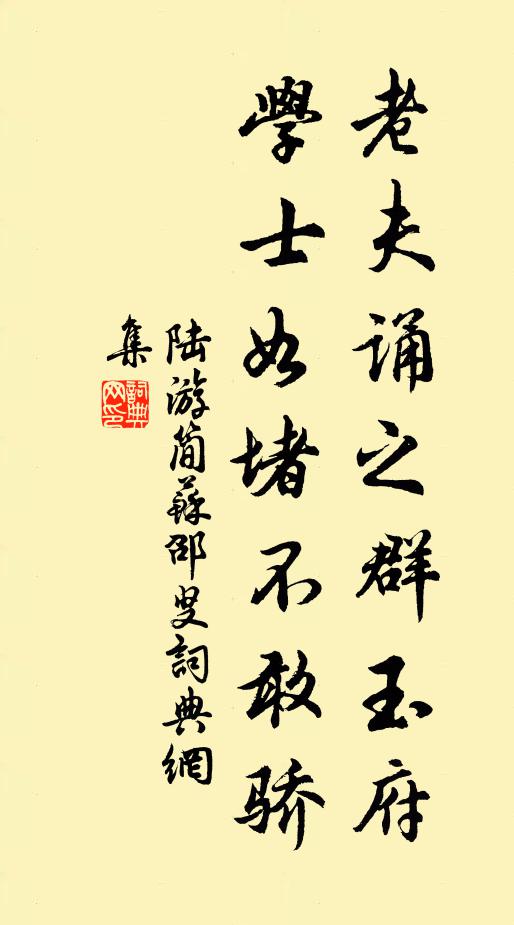 老夫诵之群玉府
學士如堵不敢骄
陆游简蘇邵叟詞典網
集
詞典
网印